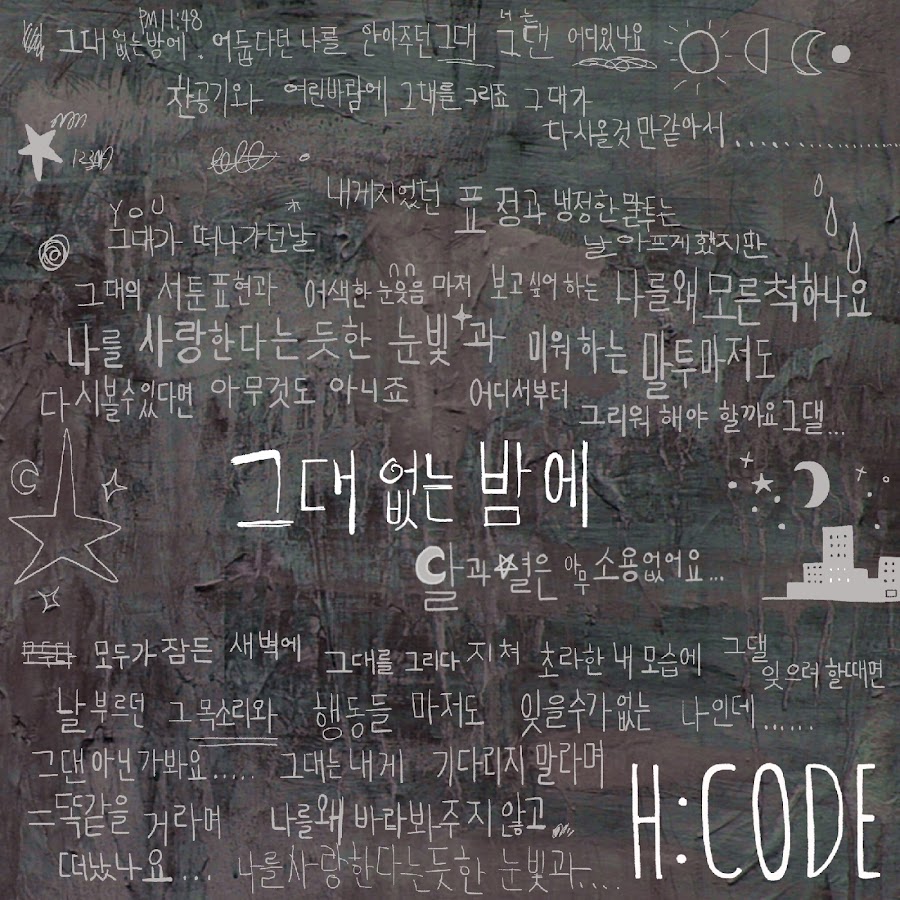 PM 11:48
그대 없는 밤에 어둡다던 나를 안아주던 그대 그댄 어디있나요
너는
찬공기와 여린바람에 그대를 그리죠 그대가
다시올것만같아서..............
YOU
내게지었던 표정과 냉정한말투는
그대가 떠나가던날
날아프게했지만
그대의 서툰표현과 어색한 눈웃음 마저 보고싶어 하는 나를왜 모른척하나요
나를 사랑한다는듯한 눈빛과 미워하는 말투마저도
다시볼수있다면 아무것도 아니죠 어디서부터
그리워 해야 할까요그댈...
그대 없는 밤에
달과 별은 아무 소용없어요...
모두가 잠든 새벽에 그대를 그리다 지쳐 초라한 내 모습에 그댈
잊으려 할때면
날부르던 그 목소리와 행동들 마저도 잊을수가없는 나인데......
그댄 아닌가봐요..... 그대는내게 기다리지 말라며
=똑같을 거라며 나를왜 바라봐주지 않고
떠났나요.... 나를사랑한다는듯한 눈빛과.....
H:CODE